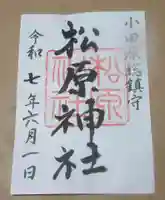 小田原総鎮守
松原神社
令和七年六月一日